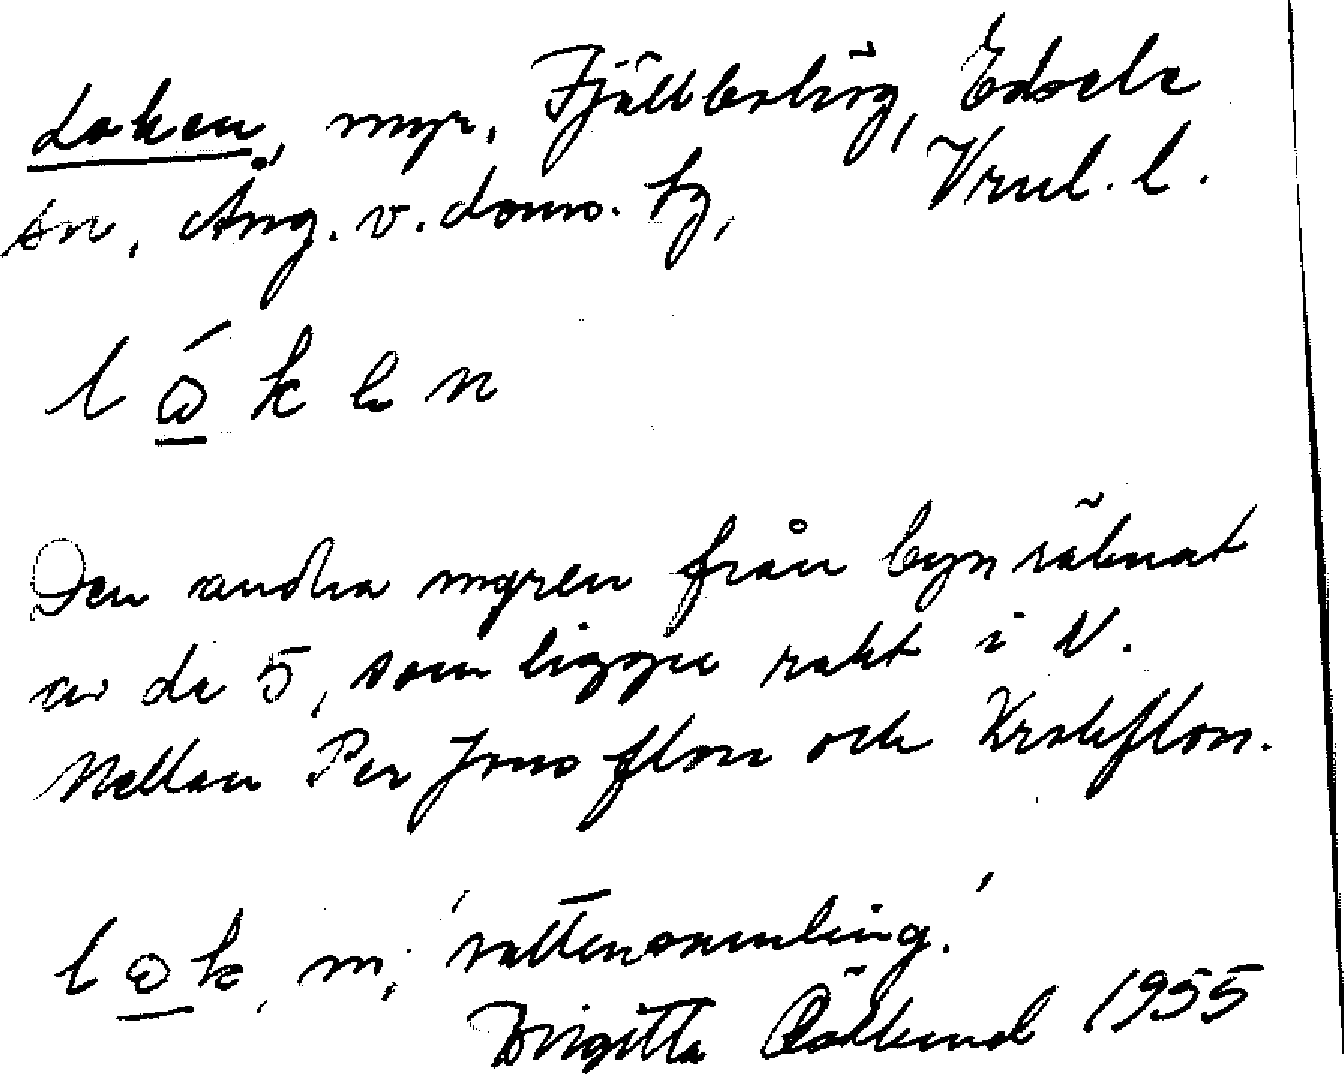 Loken, myr, Fjällberg, Edsele
sn, Ång. v. doms.
l ó k e n
Den andra myren från byn räknat
av de 5, som ligger rakt i N.
Mellan Per Jons flon och Krokflon.
l o k, m, 'vattensamling.'
Birgitta 1955